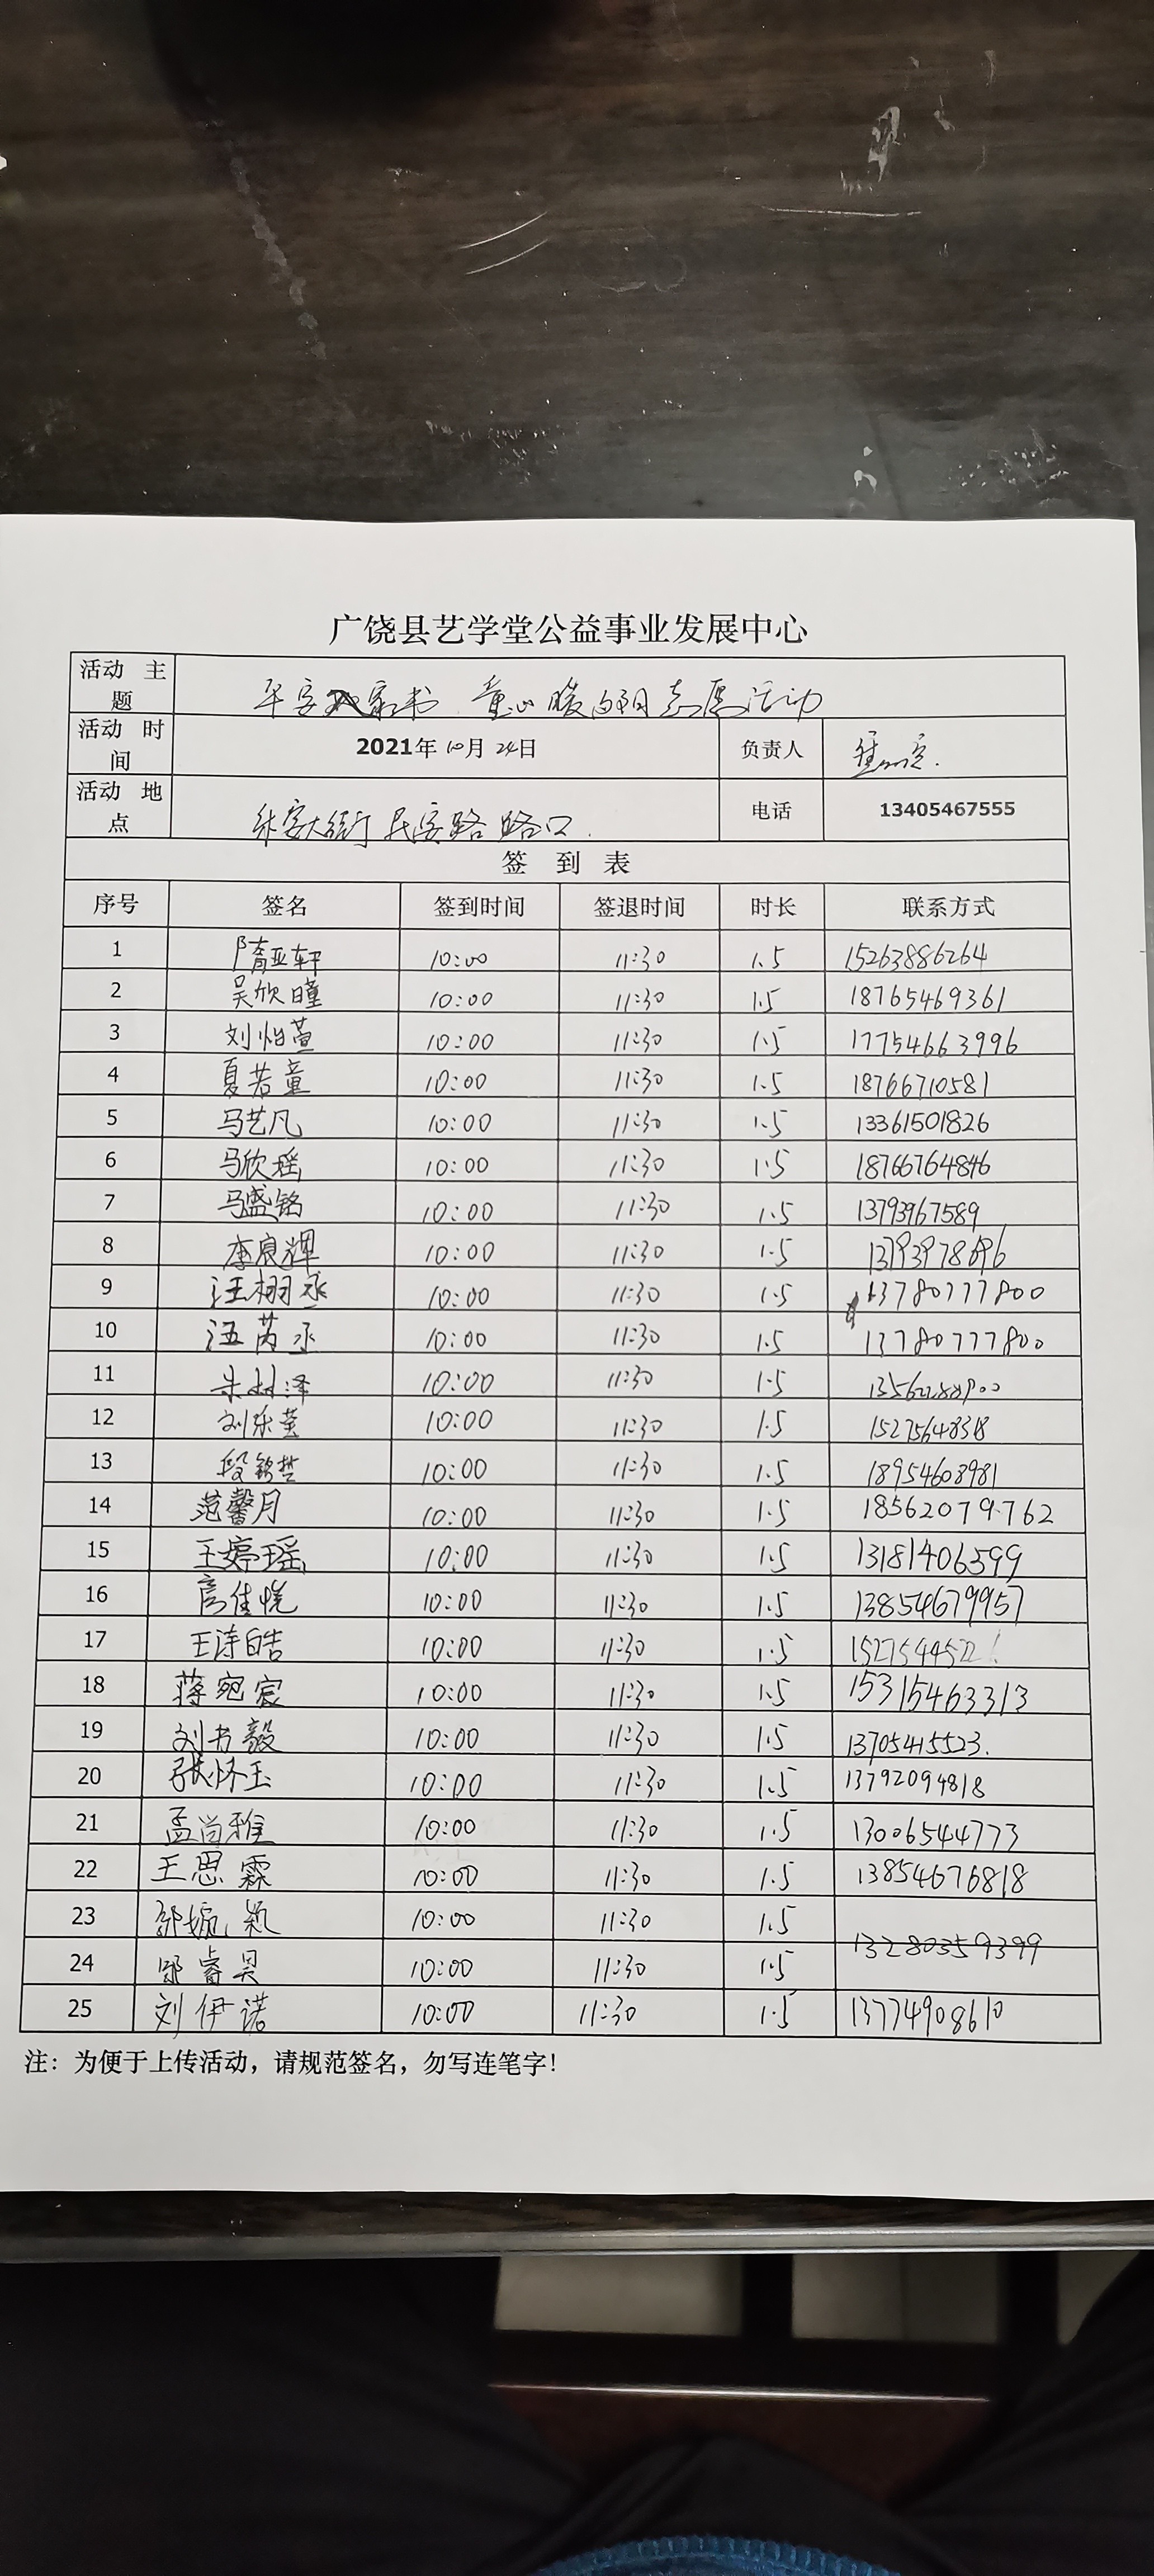 广饶县艺学堂公益事业发展中心
活动 主题 平安家书 童心暖 志愿活动
活动 时间 2021年10月24日 负责人
活动 地点 大街 民安路路口. 电话 13405467555
签 到 表
序号 签名 签到时间 签退时间 时长 联系方式
1 隋亚轩 10:00 11:30 1.5 15263886264
2 吴欣瞳 10:00 11:30 1.5 18765469361
3 刘怡萱 10:00 11:30 1.5 17754663996
4 夏若童 10:00 11:30 1.5 18766710581
5 马艺凡 10:00 11:30 1.5 13361501826
6 马欣瑶 10:00 11:30 1.5 18766764846
7 马盛铭 10:00 11:30 1.5 13793967589
8 李宸辉 10:00 11:30 1.5 13793978896
9 汪栩丞 10:00 11:30 1.5 13780777800
10 汪芮丞 10:00 11:30 1.5 13780777800
11 泽 10:00 11:30 1.5
12 刘乐萱 10:00 11:30 1.5 15275648318
13 段 10:00 11:30 1.5 18954608981
14 范馨月 10:00 11:30 1.5 18562079762
15 王婷瑶 10:00 11:30 1.5 13181406599
16 高佳悦 10:00 11:30 1.5 13854679957
17 王涛皓 10:00 11:30 1.5
18 蒋宛宸 10:00 11:30 1.5 15315463313
19 刘书毅 10:00 11:30 1.5 13705415523.
20 张怀玉 10:00 11:30 1.5 13792094818
21 孟尚雅 10:00 11:30 1.5 13006544773
22 王思霖 10:00 11:30 1.5 13854676818
23 郭婉颖 10:00 11:30 1.5 13280359399
24 郭睿昊 10:00 11:30 1.5
25 刘伊诺 10:00 11:30 1.5 13774908610
注：为便于上传活动，请规范签名，勿写连笔字！